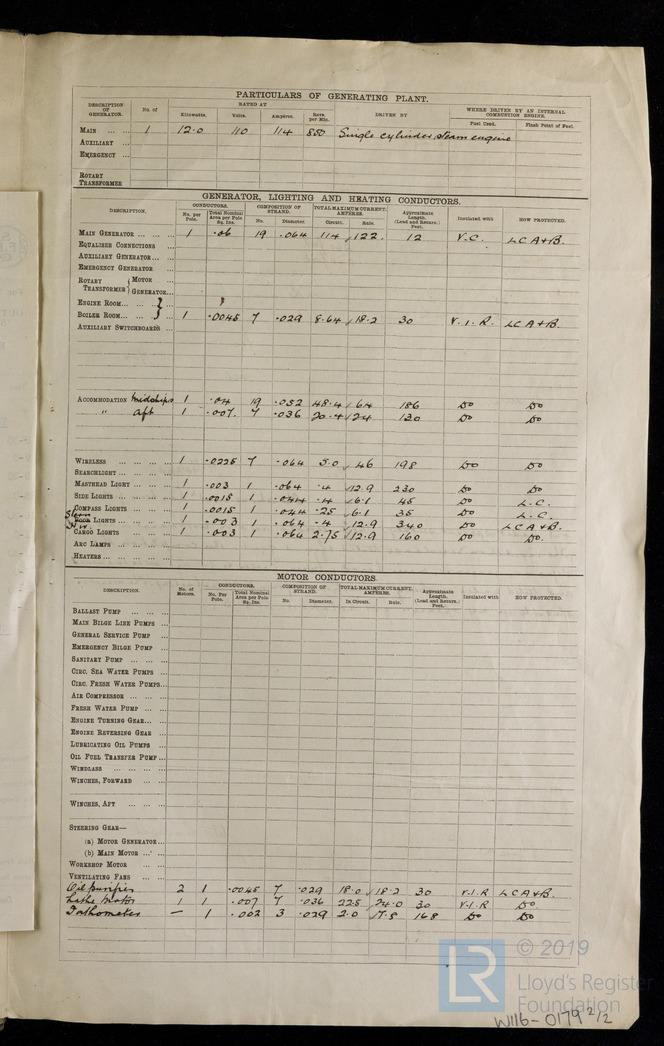 PARTICULARS OF GENERATING PLANT.
DESCRIPTION OF GENERATOR. No. of RATED AT DRIVEN BY WHERE DRIVEN BY AN INTERNAL COMBUSTION ENGINE.
Kilowatts. Volts. Ampères. Revs. per Min. Fuel Used. Flash Point of Fuel.
MAIN ... ... 1 12.0 110 114 850 Single cylinder steam engine
AUXILIARY ...
EMERGENCY ...
ROTARY TRANSFORMER
GENERATOR, LIGHTING AND HEATING CONDUCTORS.
DESCRIPTION. CONDUCTORS. COMPOSITION OF STRAND. TOTAL MAXIMUM CURRENT. AMPERES. Approximate Length. (Lead and Return.) Feet. Insulated with HOW PROTECTED.
No. per Pole. Total Nominal Area per Pole Sq. Ins. No. Diameter. Circuit. Rule.
MAIN GENERATOR ... ... ... 1 .06 19 .064 114 122. 12 V.C. L C A + B.
EQUALISER CONNECTIONS ...
AUXILIARY GENERATOR ... ...
EMERGENCY GENERATOR ...
ROTARY TRANSFORMER { MOTOR ...
GENERATOR...
ENGINE ROOM... ...
BOILER ROOM... ... 1 .0045 7 .029 8.64 18.2 30 V.I.R. L C A + B.
AUXILIARY SWITCHBOARDS ...
ACCOMMODATION midships 1 .04 19 .052 48.4 64 186 Do Do
" aft 1 .007. 7 .036 20.4 24 130 Do Do
WIRELESS ... ... ... ... 1 .0225 7 .064 30 46 198 Do Do
SEARCHLIGHT ... ... ... ...
MASTHEAD LIGHT ... ... ... 1 .003 1 .064 .4 12.9 230 Do Do
SIDE LIGHTS ... ... ... ... 1 .0015 1 .044 .4 6.1 45 Do L.C.
COMPASS LIGHTS ... ... ... 1 .0015 1 .044 .25 6.1 35 Do L.C.
Stern LIGHTS ... ... ... 1 .003 1 .064 .4 12.9 340 Do L C A + B.
CARGO LIGHTS ... ... ... 1 .003 1 .064 2.75 12.9 160 Do Do.
ARC LAMPS ... ... ... ...
HEATERS ... ... ... ... ...
MOTOR CONDUCTORS.
DESCRIPTION. No. of Motors. CONDUCTORS. COMPOSITION OF STRAND. TOTAL MAXIMUM CURRENT. AMPERES. Approximate Length. (Lead and Return.) Feet. Insulated with HOW PROTECTED.
No. Per Pole. Total Nominal Area per Pole Sq. Ins. No. Diameter. In Circuit. Rule.
BALLAST PUMP ... ... ...
MAIN BILGE LINE PUMPS ...
GENERAL SERVICE PUMP ...
EMERGENCY BILGE PUMP ...
SANITARY PUMP ... ... ...
CIRC. SEA WATER PUMPS ...
CIRC. FRESH WATER PUMPS...
AIR COMPRESSOR ... ... ...
FRESH WATER PUMP ... ...
ENGINE TURNING GEAR... ...
ENGINE REVERSING GEAR ...
LUBRICATING OIL PUMPS ...
OIL FUEL TRANSFER PUMP ...
WINDLASS ... ... ... ...
WINCHES, FORWARD ... ...
WINCHES, AFT ... ... ...
STEERING GEAR—
(a) MOTOR GENERATOR...
(b) MAIN MOTOR ... ...
WORKSHOP MOTOR ... ...
VENTILATING FANS ... ...
Oil purifier 2 1 .0045 7 .029 18.0 18.2 30 V.I.R L C A + B.
Lathe Motor 1 1 .007 7 .036 22.5 24.0 30 V.I.R Do
Fathometer — 1 .002 3 .029 2.0 7.8 168 Do Do
© 2019
LR Lloyd's Register
Foundation
W116-0179 2/2